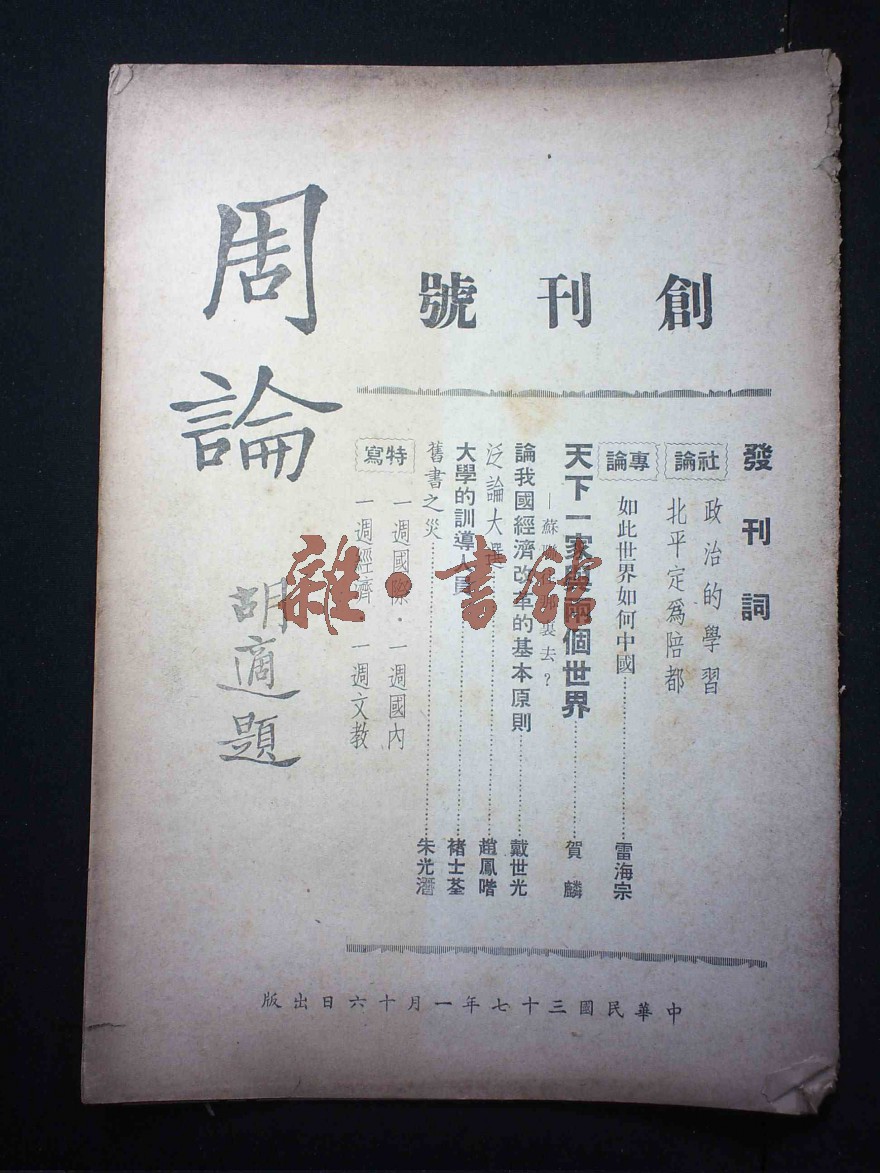 周論
胡適題
創刊號
發刊詞
社論
政治的學習
北平定為陪都
專論
如此世界如何中國……雷海宗
天下一家與兩個世界……賀麟
—蘇聯 裏去？
論我國經濟改革的基本原則……戴世光
泛論大選……趙鳳喈
大學的訓導人員……褚士荃
舊書之災……朱光潛
特寫
一週國際·一週國內
一週經濟·一週文教
中華民國三十七年一月十六日出版
雜·書館